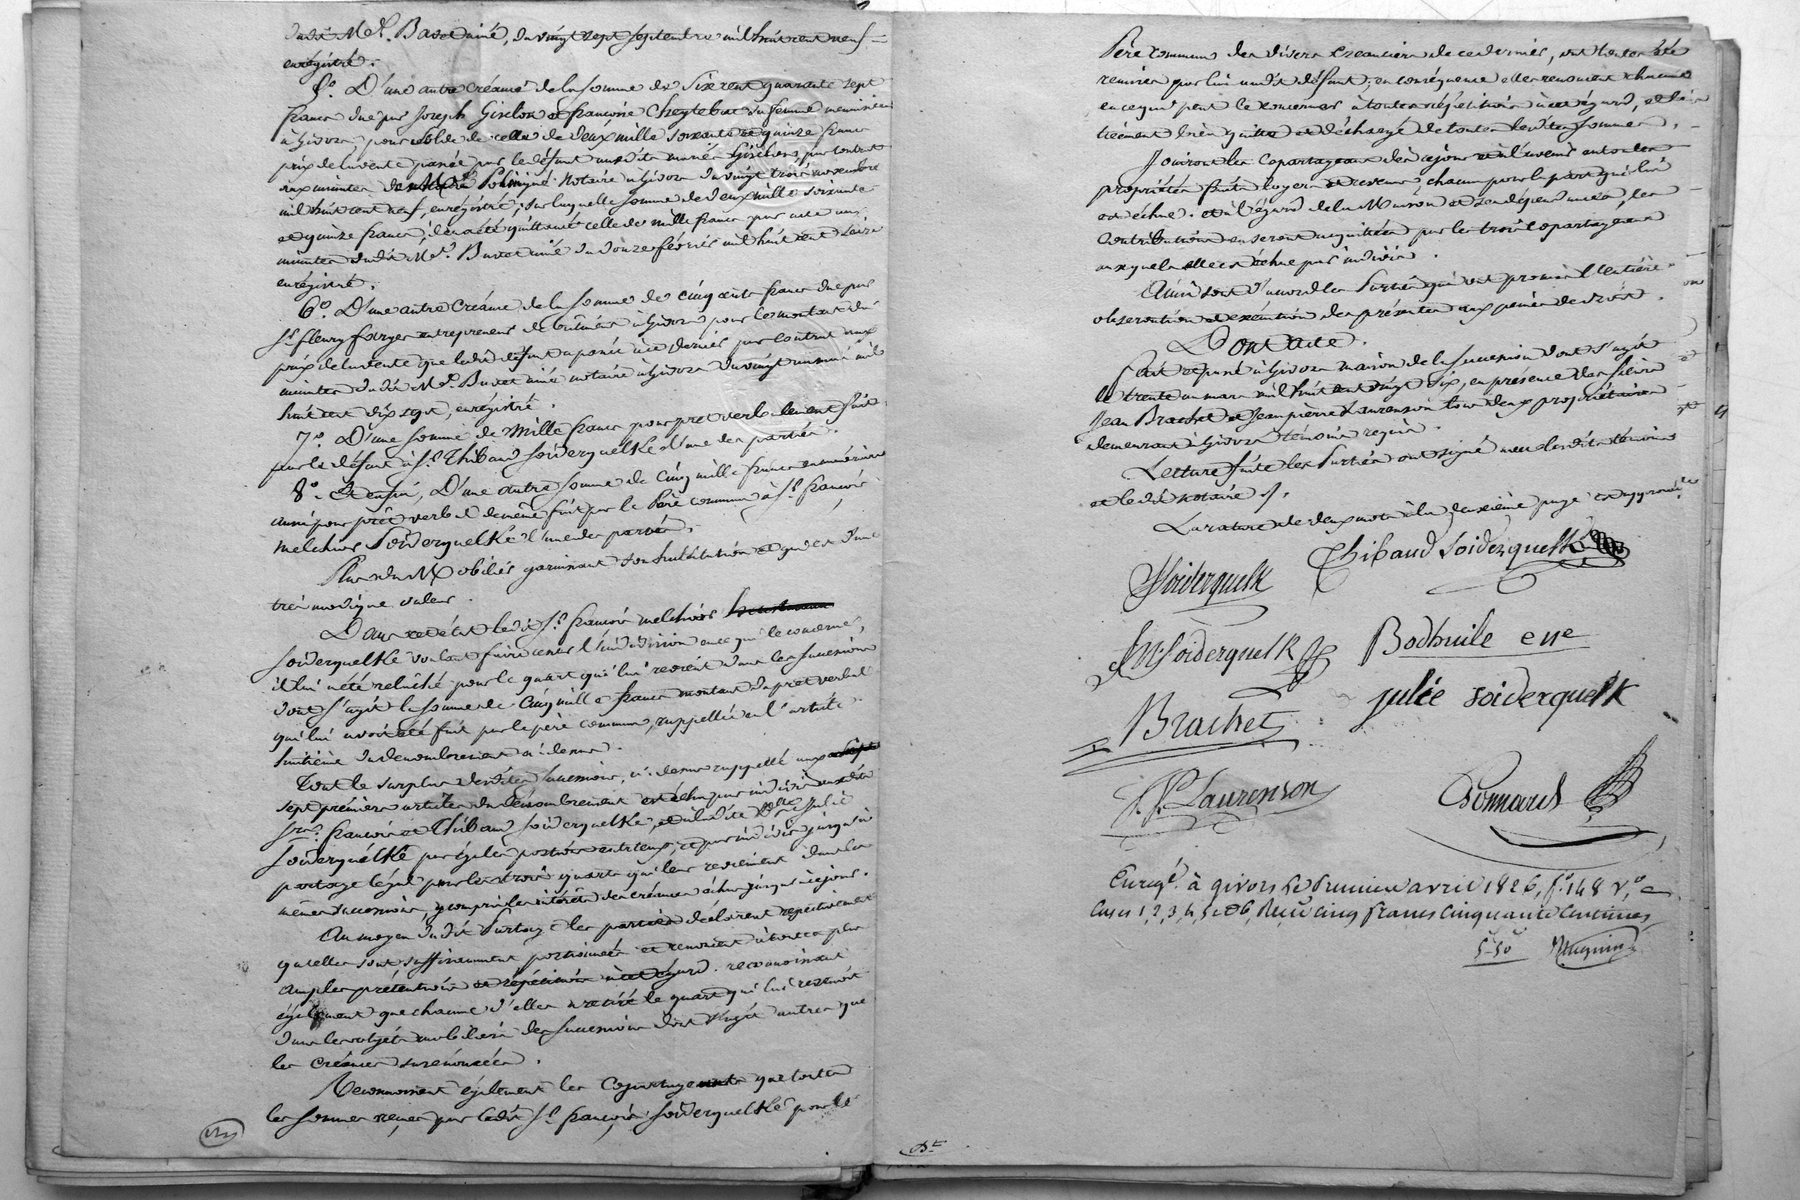 dudit Me. Badet ainé, du vingt sept septembre mil huit cent neuf
enrégistré.
5°. D'une autre créance de la somme de six cent quarante sept
francs due par Joseph Giselon et françoise sa femme
à Givors, pour solde de celle de deux mille soixante et quinze francs
prix de la vente passée par le défunt auxdits mariés par contrat
aux minutes de notaire à Givors du vingt trois novembre
mil huit cent neuf, enrégistré; sur laquelle somme de deux mille soixante
et quinze francs, il en a été quittancé celle de mille francs par acte aux
minutes dudit Me. Badet ainé du douze février mil huit cent seize
enrégistré.
6°. D'une autre Créance de la somme de cinq cents francs due par
Sr. fleury entrepreneur de bâtiment à Givors pour le montant du
prix de la vente que ledit défunt a passée à ce dernier par contrat aux
minutes dudit Me. Badet ainé notaire à Givors du vingt un mai mil
huit cent dix sept, enrégistré.
7°. D'une somme de Mille francs pour pret verbalement fait
par le défunt à Sr. Thibaud Soiderquelke l'une des parties.
8°. Et enfin, D'une autre somme de Cinq mille francs
aussi pour prêt verbal de même fait par le Père commun à Sr. françois
melchior Soiderquelke l'une des parties.
Plus du Mobilier garnissant son habitation et qui est d'une
très modique valeur.
Dans cet état ledit Sr. françois melchior
Soiderquelke voulant faire cesser l'indivision en ce qui le concerne,
il lui a été relâché pour le quart qui lui revient dans les successions
dont s'agit la somme de Cinq mille francs montant du pret verbal
qui lui avoit été fait par le père commun, rappellée en l'article
huitième du dénombrement ci-dessus.
Tout le surplus desdites successions, ci-dessus rappellé aux
sept premiers articles du dénombrement est échu par indivis auxdits
Srs. françois et Thibaud Soiderquelke, et à ladite Dlle. Julie
Soiderquelke par égales portions entr'eux, et par indivis jusqu'à
partage légal pour les trois quarts qui leur reviennent dans les
mêmes successions, y compris les intérêts des créances échus jusqu'à ce jour.
Au moyen dudit Partage les parties déclarent respectivement
qu'elles sont suffisamment portionnées et renoncent à toutes plus
amples prétentions et répétitions à cet égard. reconnoissant
également que chacune d'elles a retiré le quart qui lui restoit
dans les objets mobiliers des successions dont s'agit autres que
les créances susénoncées.
Reconnoissent également les Copartageants que toutes
les sommes reçues par ledit Sr. françois Soiderquelke pour le
Père commun des divers créanciers de ce dernier, ont toutes été
remises par lui audit défunt; en conséquence elles renoncent chacune
en ce qui peut le concerner à toutes répétitions à cet égard, et le
tiennent bien quitte et déchargé de toutes lesdites sommes.
Jouiront les Copartageans dès ce jour et à l'avenir en toutes
propriétés fruits loyers et revenus, chacun pour la part qui lui
est échue. et à l'égard de la Maison et ses dépendances, les
Contributions en seront acquittées par les trois Copartageans
auxquels elle est échue par indivis.
Ainsi sont d'accord les Parties qui ont promis l'entière
observation et exécution des présentes aux peines de droit.
Dont acte.
Fait et passé à Givors maison de la succession dont s'agit
le trente un mars mil huit cent vingt six, en présence des sieurs
Jean Brachet et Jean pierre Laurenson tous deux propriétaires
demeurant à Givors témoins requis.
Lecture faite les Parties ont signé avec lesdits témoins
et ledit notaire.
La rature de deux mots à la deuxième page est approuvée
Soiderquelk Thibaud Soiderquelk
fM Soiderquelk Bodhuile ene
Brachet Julie Soiderquelk
J.P. Laurenson Bonnard
Enregé. à givors Le Premier avril 1826, f° 148 v°, c
Cases 1, 2, 3, 4, 5 et 6, Reçu cinq francs Cinquante Centimes
5-50